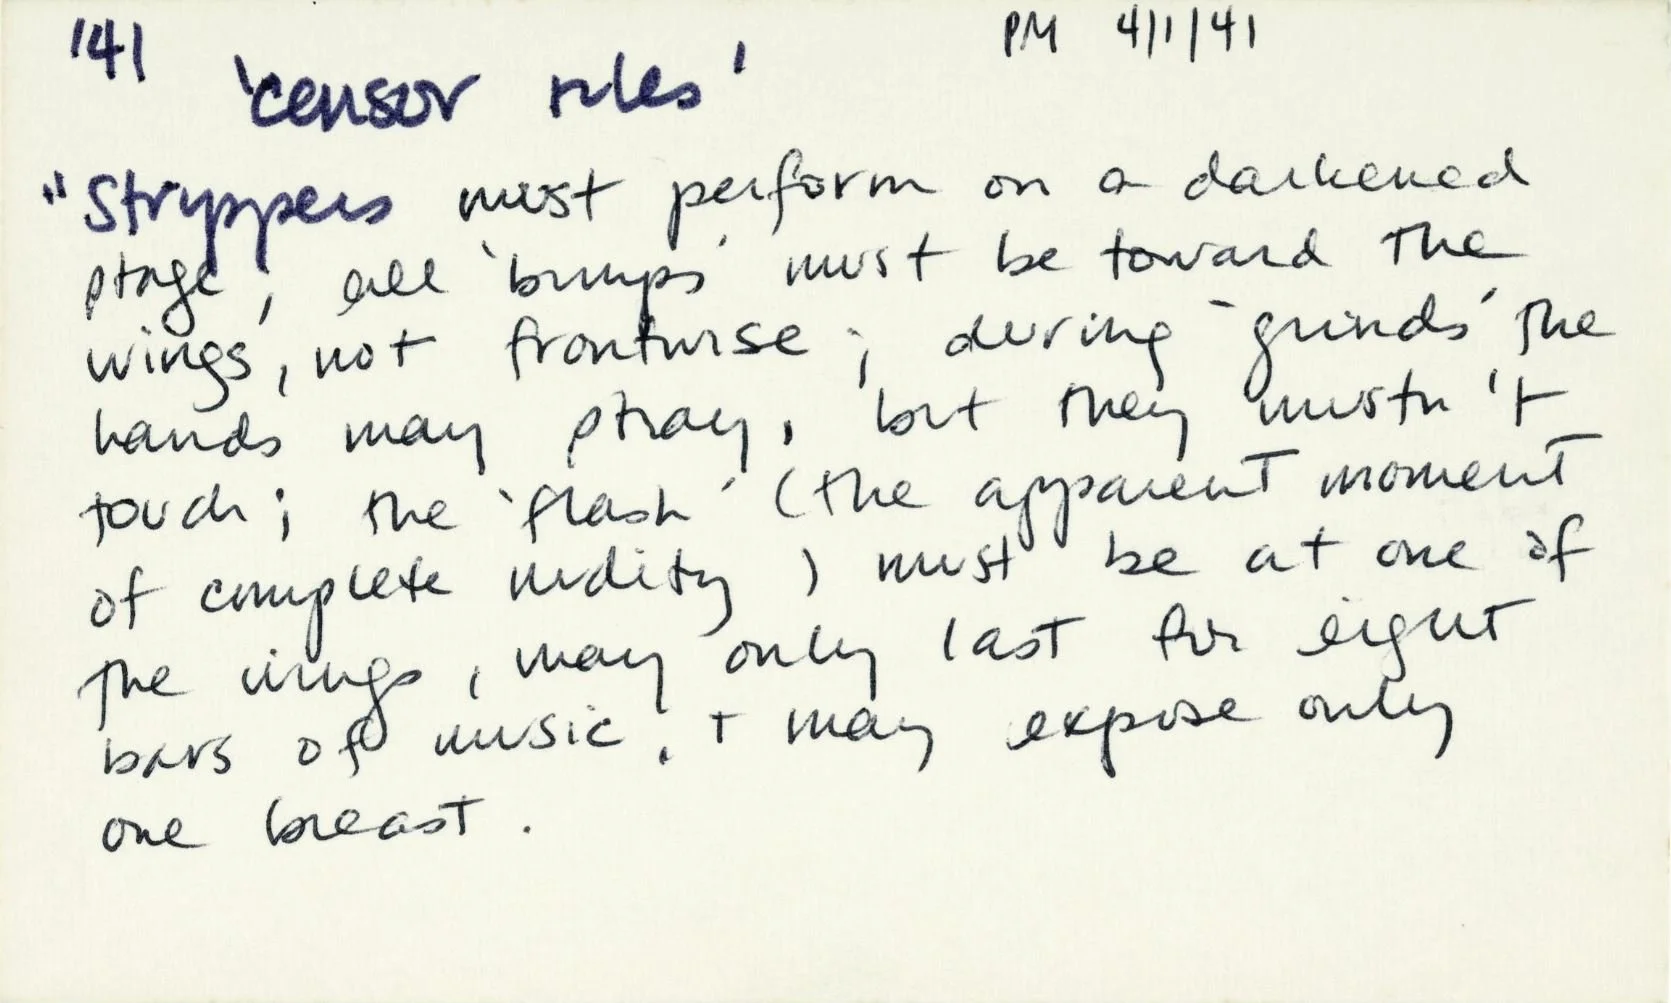 '41 PM 4/1/41
'censor rules'
"Stryppers must perform on a darkened
stage, all 'bumps' must be toward the
wings, not frontwise; during 'grinds' the
hands may stray, but they mustn't
touch; the 'flash' (the apparent moment
of complete nudity) must be at one of
the wings, may only last for eight
bars of music, + may expose only
one breast.